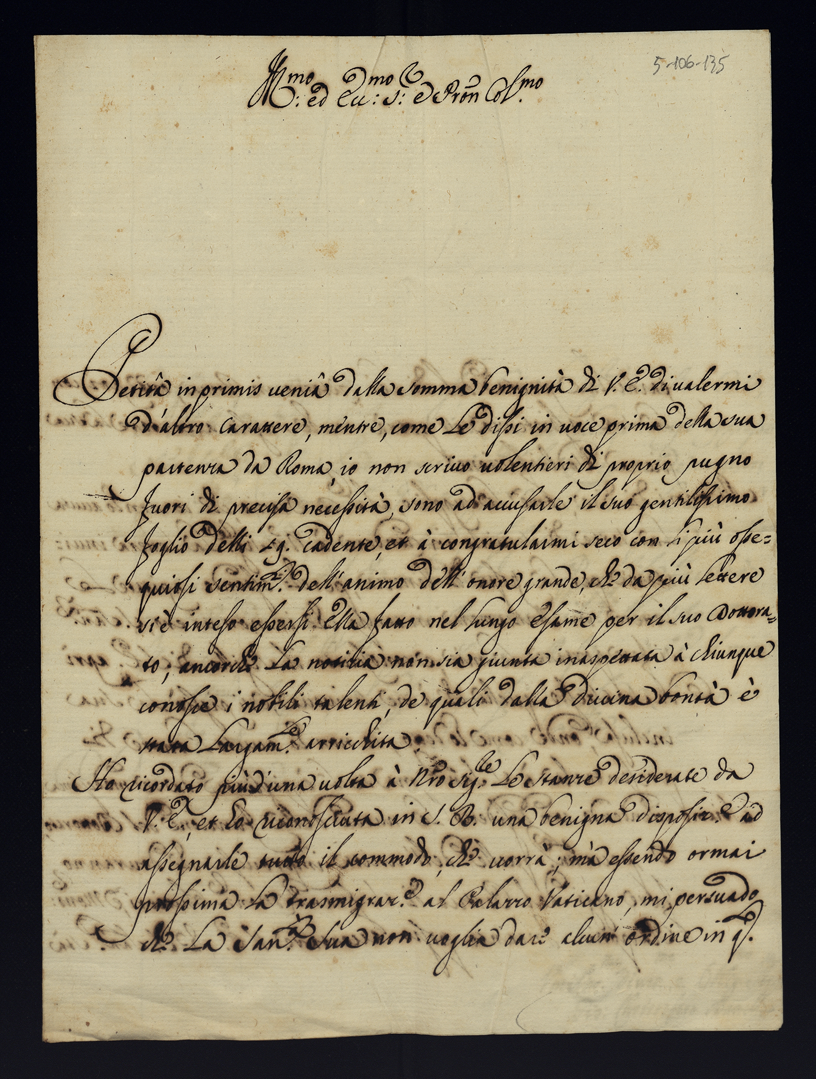 5-106-135
Ill.mo: ed Ecc.mo: S.r: e Pron Col.mo
Petitâ in primis veniâ dalla somma benignità di V. E. di valermi
d'altro carattere, mentre, come Le dissi in voce prima della sua
partenza da Roma, io non scrivo volentieri di proprio pugno
fuori di precisa necessità, sono ad accusarle il suo gentilissimo
foglio delli 29. cadente, et à congratularmi seco con li più osse=
quiosi sentim.ti dell'animo dell'onore grande, che da più lettere
s'è inteso essersi Ella fatto nel lungo esame per il suo Dottora=
to; ancorche la notitia non sia giunta inaspettata à chiunque
conosce i nobili talenti, de quali dalla Divina bontà è
stata largam.te arricchita.
Ho ricordato più d'una volta à Nro Sig.re le stanze desiderate da
V. E., et hò riconosciuta in S. B. una benigna disposiz.e ad
assegnarle tutto il commodo, che vorrà; mà essendo ormai
prossima la trasmigraz.e al Palazzo Vaticano, mi persuado
che la San.tà Sua non voglia dare alcun ordine in q.o